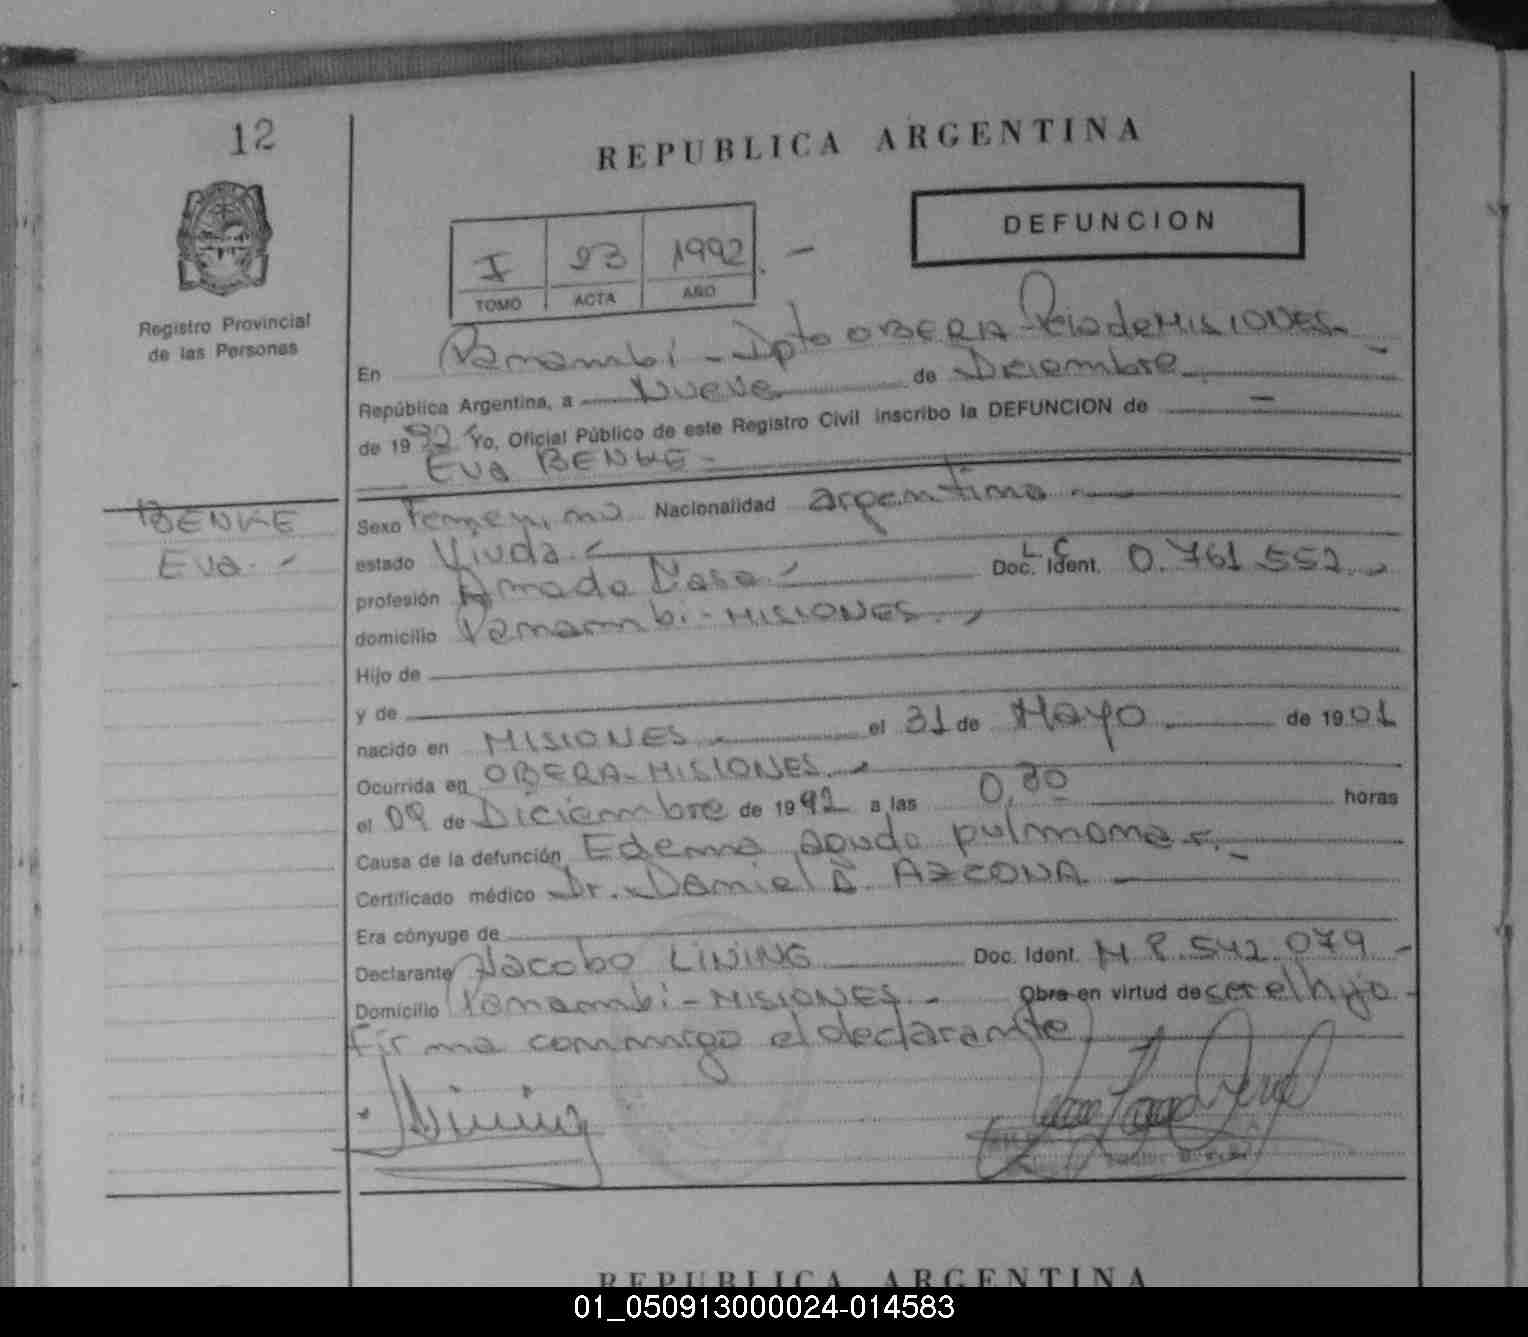 12
REPUBLICA ARGENTINA
DEFUNCION
I 23 1992. -
TOMO ACTA AÑO
Registro Provincial
de las Personas
En Panambi - Dpto OBERA - Pcia de MISIONES -
República Argentina, a Nueve de Diciembre
de 1992 Yo, Oficial Público de este Registro Civil inscribo la DEFUNCION de -
Eva BENKE -
BENKE
Eva. -
Sexo Femenino Nacionalidad argentina. -
estado Viuda. - L. C.
profesión Ama de Casa. - Doc. Ident. 0.761.552. -
domicilio Panambi - MISIONES. -
Hijo de
y de
nacido en MISIONES el 31 de Mayo de 1901
Ocurrida en OBERA - MISIONES. -
el 09 de Diciembre de 1992 a las 0,30 horas
Causa de la defunción Edema agudo pulmonar. -
Certificado médico Dr. Daniel AZCONA
Era cónyuge de
Declarante Jacobo LINING Doc. Ident. M 8.542.079 -
Domicilio Panambi - MISIONES - Obra en virtud de ser el hijo -
Firma conmigo el declarante
REPUBLICA ARGENTINA
01_050913000024-014583